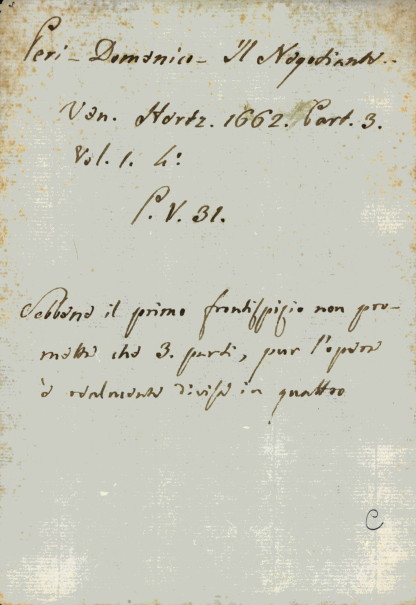 Peri - Domenico - Il Negotiante -
Ven. Hertz. 1662. Part. 3.
Vol. 1. 4°
P. V. 31.
Sebbene il primo frontispizio non pro-
mette che 3. parti, pur l'opera
è realmente divisa in quattro
C